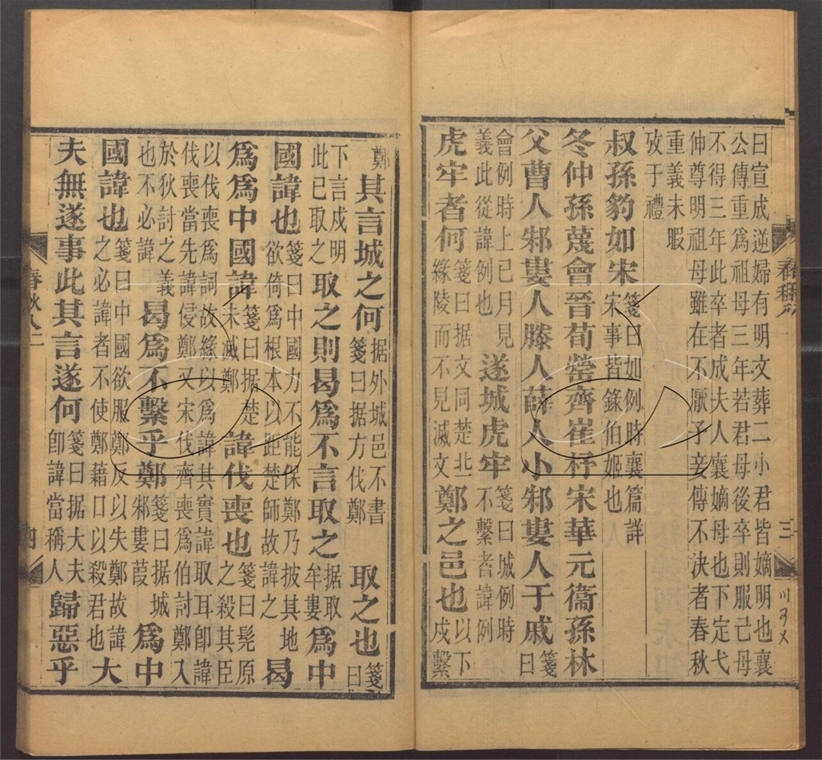 曰宣成逆婦有明文葬二小君皆嫡明也襄
公傳重爲祖母三年若君母後卒則服己母
不得三年此卒者成夫人襄嫡母也下定弋
伸尊明祖母雖在不厭矛妾傳不決者春秋
重義未暇
攷于禮
叔孫豹如宋箋曰如例時襄篇詳
宋事皆錄伯姬也
冬仲孫蔑會晉荀罃齊崔杼宋華元衞孫林
父曹人邾婁人滕人薛人小邾婁人于戚箋曰
會例時上已月見
義此從諱例也遂城虎牢箋曰城例時
不繫者諱例
虎牢者何箋曰据文同楚北
緣陵而不見滅文鄭之邑也以下
戍繫
鄭其言城之何据外城邑不書
箋曰据方伐鄭取之也箋曰
下言戍明
此已取之取之則曷爲不言取之据取
牟婁爲中
國諱也箋曰中國力不能保鄭乃披其地
欲倚爲根本以距楚師故諱之曷
爲爲中國諱箋曰据楚
未滅鄭諱伐喪也箋曰髡原
之殺其臣
以伐喪爲詞故緣以爲諱其實諱取耳卽諱
伐喪當先諱侵鄭又宋伐齊喪爲伯討鄭入
於狄討之義
也不必諱曷爲不繫乎鄭箋曰据城
邾婁葭爲中
國諱也箋曰中國欲服鄭反以失鄭故諱
之必諱者不使鄭藉口以殺君也大
夫無遂事此其言遂何箋曰据大夫
卽諱當稱人歸惡乎
春秋八二
四
三